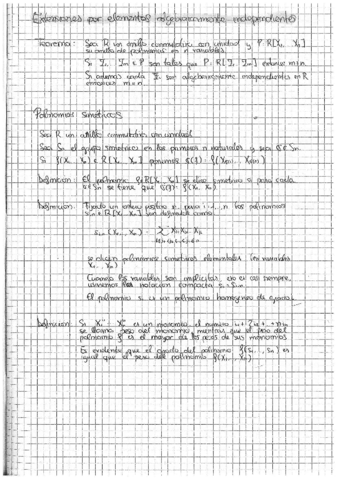 Extensiones por elementos algebraicamente independientes
Teorema: Sea R un anillo conmutativo con unidad y P = R[X1, Xn]
su anillo de polinomios en n variables.
Si Z1, Zm ∈ P son tales que P = R[Z1, Zm] entonces m≥n.
Si además cada Zi son algebraicamente independientes en R
entonces m=n.
Polinomios simétricos
Sea R un anillo conmutativo con unidad.
Sea Sn el grupo simétrico en los primeros n naturales y sea σ∈Sn.
Si f(X1, Xn) ∈ R[X1, Xn] ponemos σ(f) = f(Xσ(1), Xσ(n))
Definición: El polinomio f∈R[X1, Xn] se dice simétrico si para cada
σ∈Sn se tiene que σ(f) = f(X1, Xn)
Definición: Fijado un entero positivo n, para i=1, n los polinomios
si,n ∈ R[X1, Xn] son definidos como
si,n (X1, Xn) = Σ Xj1 Xj2 Xji
se dicen polinomios simétricos elementales en variables
X1, Xn)
Cuando las variables son implícitas, eso es casi siempre,
usaremos la notación compacta si = si,n
El polinomio si es un polinomio homogéneo de grado i
Definición: Si X1 Xn es un monomio, el número
se llama peso del monomio, mientras que el peso del
polinomio f es el mayor de los pesos de sus monomios
Es evidente que el grado del polinomio f(s1, , sn) es
igual que el peso del polinomio f(X1, Xn)